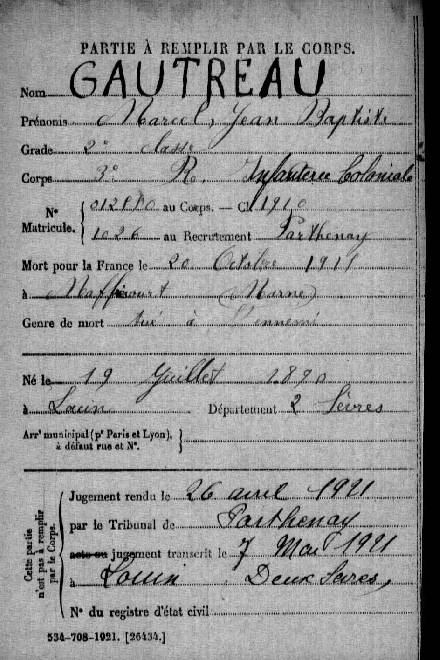 PARTIE À REMPLIR PAR LE CORPS.
Nom GAUTREAU
Prénoms Marcel, Jean Baptiste
Grade 2e classe
Corps 3e R. Infanterie Coloniale
N° Matricule. { 012880 au Corps. — Cl 1910
1026 au Recrutement Parthenay
Mort pour la France le 20 Octobre
à Maffrécourt (Marne)
Genre de mort tué à l'ennemi
Né le 19 Juillet 1890
à Louin Département 2 Sèvres
Arrt municipal (pr Paris et Lyon), à défaut rue et N°. }
Cette partie n'est pas à remplir par le Corps.
Jugement rendu le 26 avril 1921
par le Tribunal de Parthenay
acte ou jugement transcrit le 7 Mai 1921
à Louin, Deux Sèvres,
N° du registre d'état civil
534-708-1921. [26434.]